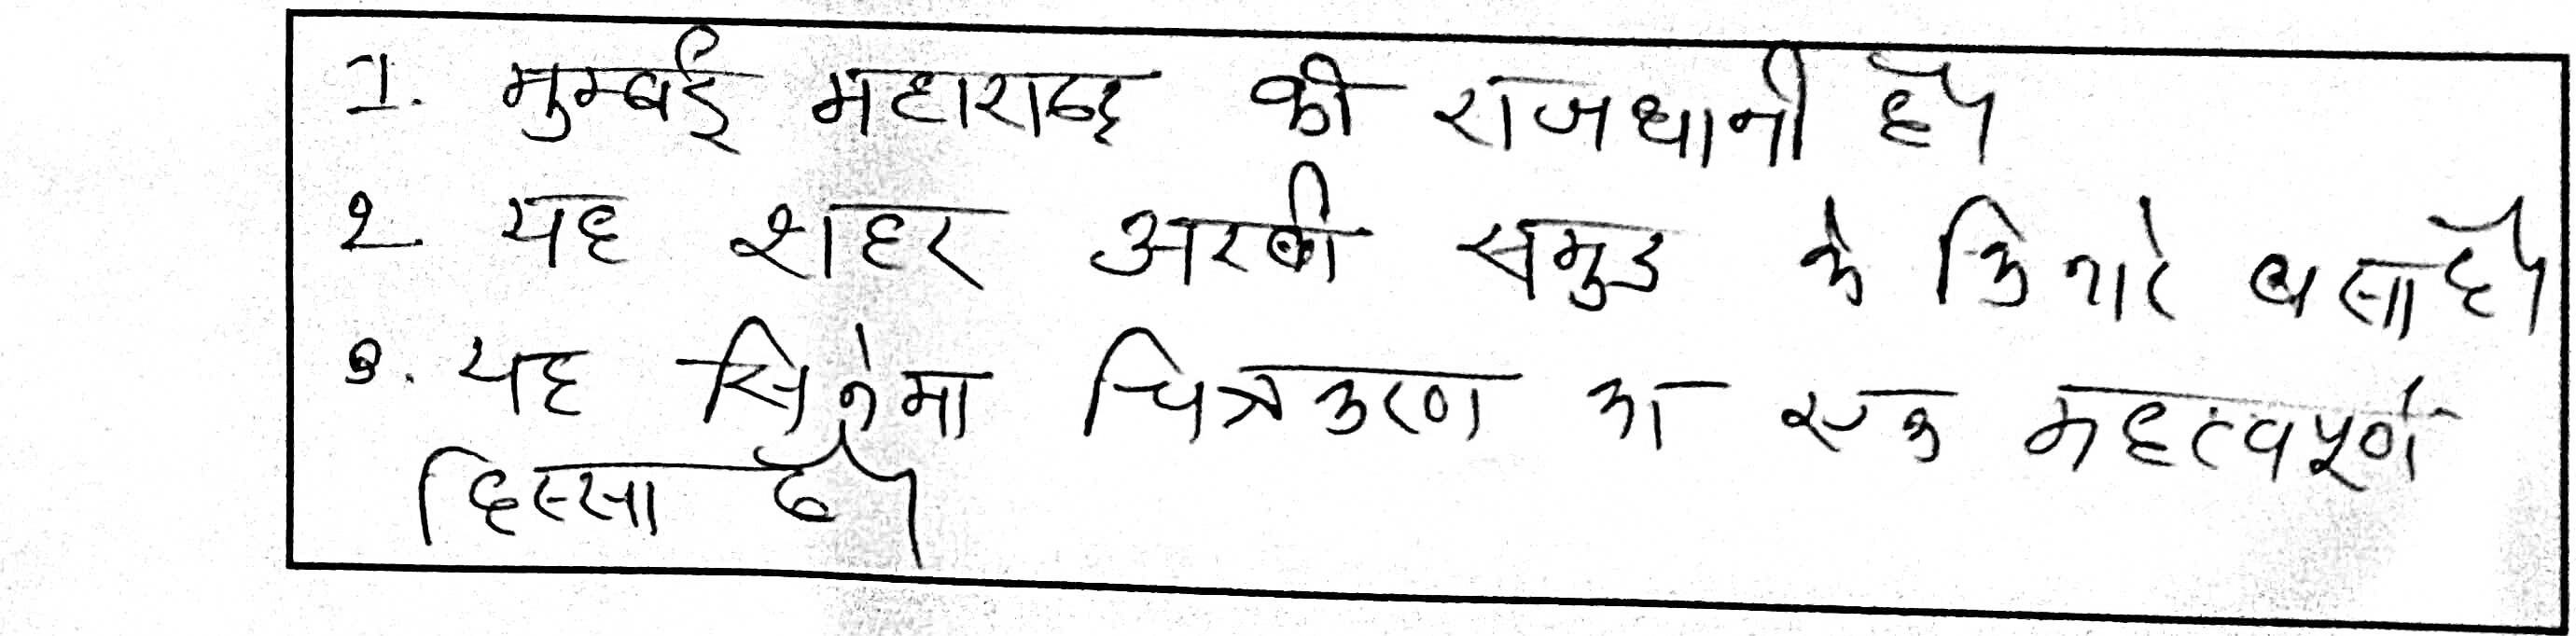 1. मुम्बई महाराष्ट्र की राजधानी है।
2 यह शहर अरबी समुद्र के किनारे बसा है।
3. यह सिनेमा चित्रकरण का एक महत्वपूर्ण
हिस्सा है।